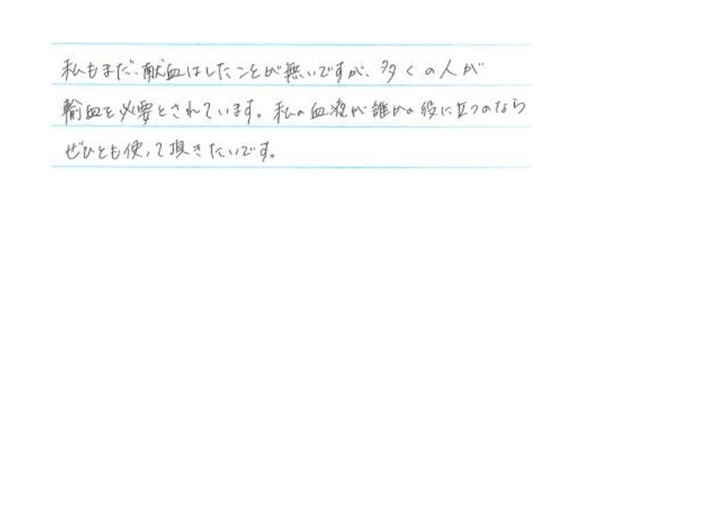 私もまだ、献血はしたことが無いですが、多くの人が
輸血を必要とされています。私の血液が誰かの役に立つのなら
ぜひとも使って頂きたいです。